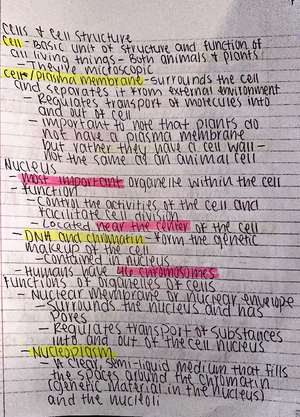 Cells & Cell Structure
Cell - Basic unit of structure and function of
all living things - Both animals & plants
- They're microscopic
cell/plasma membrane - surrounds the cell
and separates it from external environment
- Regulates transport of molecules into
and out of cell
- important to note that plants do
not have a plasma membrane
but rather they have a cell wall -
not the same as an animal cell
Nucleus
- most important organelle within the cell
- function
- Control the activities of the cell and
facilitate cell division
- Located near the center of the cell
- DNA and chromatin - form the genetic
makeup of the cell
- contained in nucleus
- Humans have 46 chromosomes
Functions of organelles of cells
- Nuclear membrane or nuclear envelope
- Surrounds the nucleus and has
pores
- Regulates transport of substances
into and out of the cell nucleus
- Nucleoplasm
- A clear, semi-liquid medium that fills
the spaces around the chromatin
(genetic material in the nucleus)
and the nucleoli